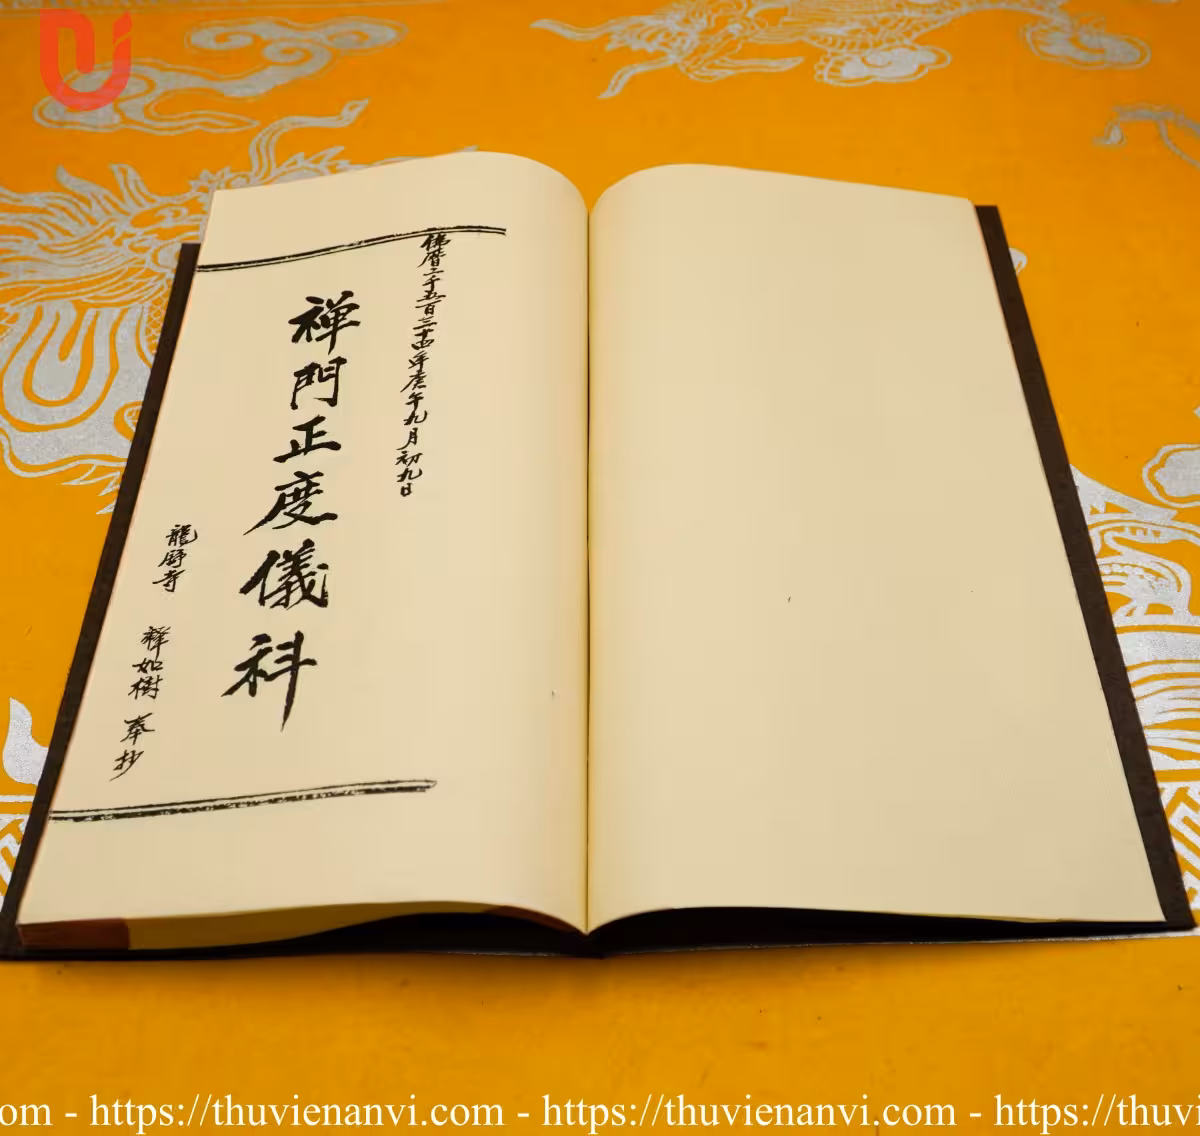 佛曆二千五百三十四年庚午九月初九日
禅門正度儀科
龍舒寺 釋如樹 奉抄
om - https://thuvienanvi.com - https://thuvienanvi.com - https://thuvi